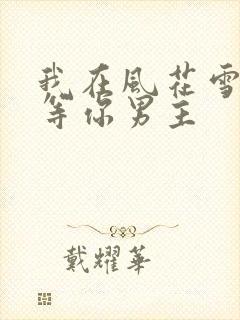 我在風花雪
等你男主
戴耀華